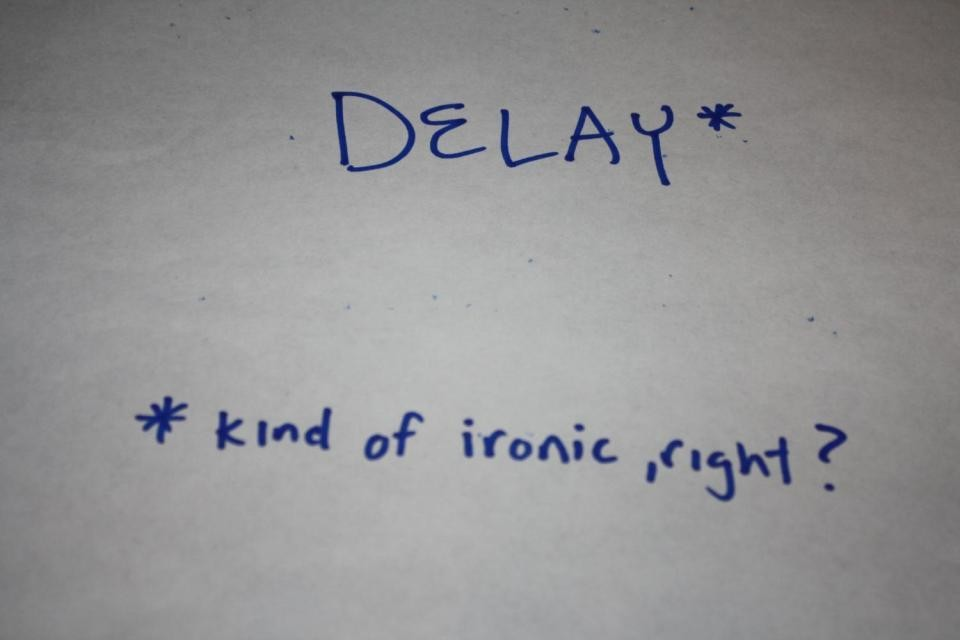 DELAY*
* kind of ironic, right?